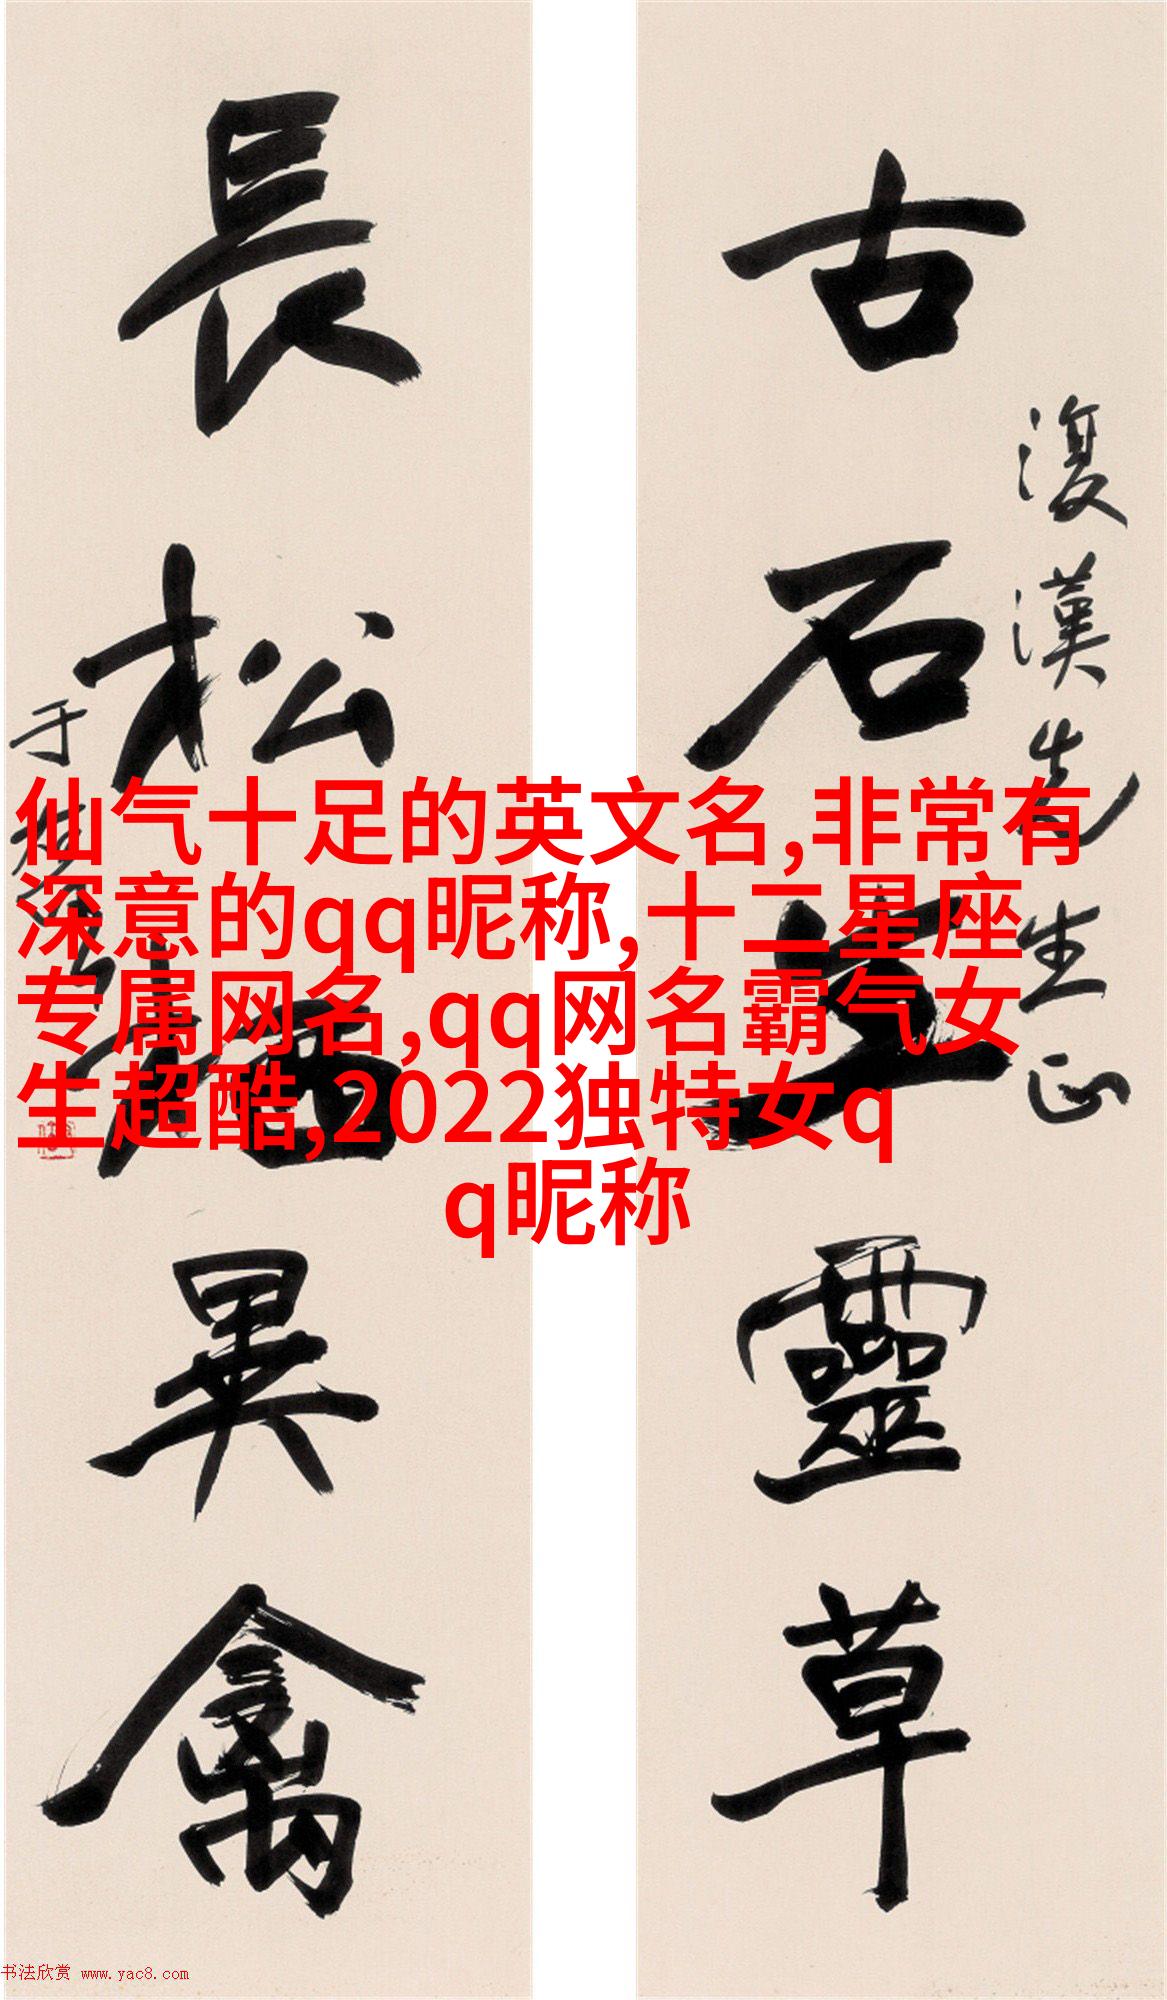 古石生靈草
復漢先生正
長松栖異禽
于右任
仙气十足的英文名,非常有
深意的qq昵称,十二星座
专属网名,qq网名霸气女
生超酷,2022独特女q
q昵称
书法欣赏 www.yac8.com